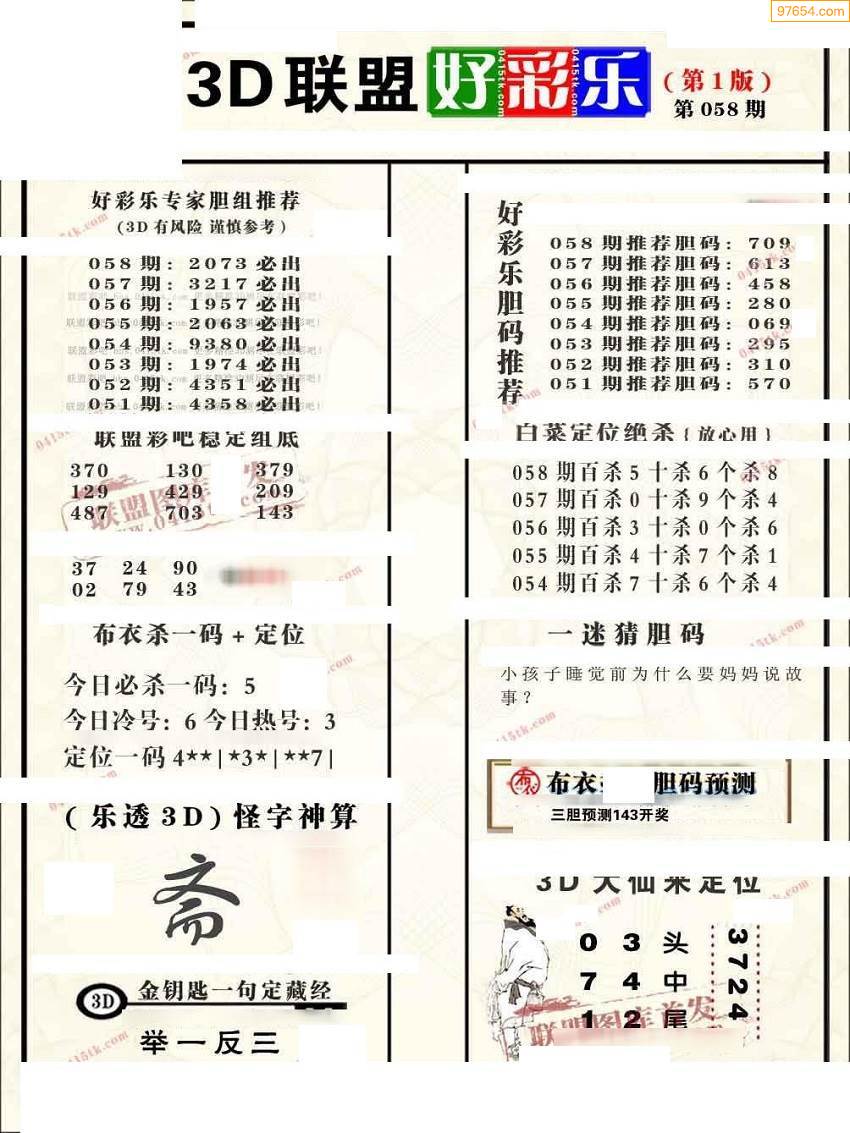 97654.com
3D联盟好彩乐
(第1版)
第058期
好彩乐专家胆组推荐
(3D有风险 谨慎参考)
058期: 2073必出
057期: 3217必出
056期: 1957必出
055期: 2063必出
054期: 9380必出
053期: 1974必出
052期: 4351必出
051期: 4358必出
联盟彩吧稳定组底
370 130 379
129 429 209
487 703 143
37 24 90
02 79 43
布衣杀一码+定位
今日必杀一码: 5
今日冷号: 6 今日热号: 3
定位一码 4**|*3*|**7|
(乐透3D)怪字神算
斋
3D 金钥匙一句定藏经
举一反三
好彩乐胆码推荐
058期推荐胆码: 709
057期推荐胆码: 613
056期推荐胆码: 458
055期推荐胆码: 280
054期推荐胆码: 069
053期推荐胆码: 295
052期推荐胆码: 310
051期推荐胆码: 570
白菜定位绝杀{放心用}
058期百杀5十杀6个杀8
057期百杀0十杀9个杀4
056期百杀3十杀0个杀6
055期百杀4十杀7个杀1
054期百杀7十杀6个杀4
一迷猜胆码
小孩子睡觉前为什么要妈妈说故
事?
布衣 胆码预测
三胆预测143开奖
3D大仙来定位
0 3 头
7 4 中
1 2 尾
3724
联盟图库首发
0415tk.com